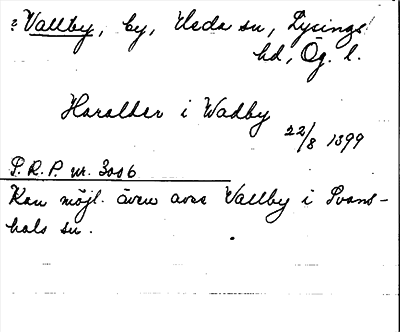 ? Vallby, by, Heda sn, Lysings
hd, Ög. l.
Haralder i Wadby
22/8 1399
P.R.P. nr. 3006
Kan möjl. även avse Vallby i Svans-
hals sn.